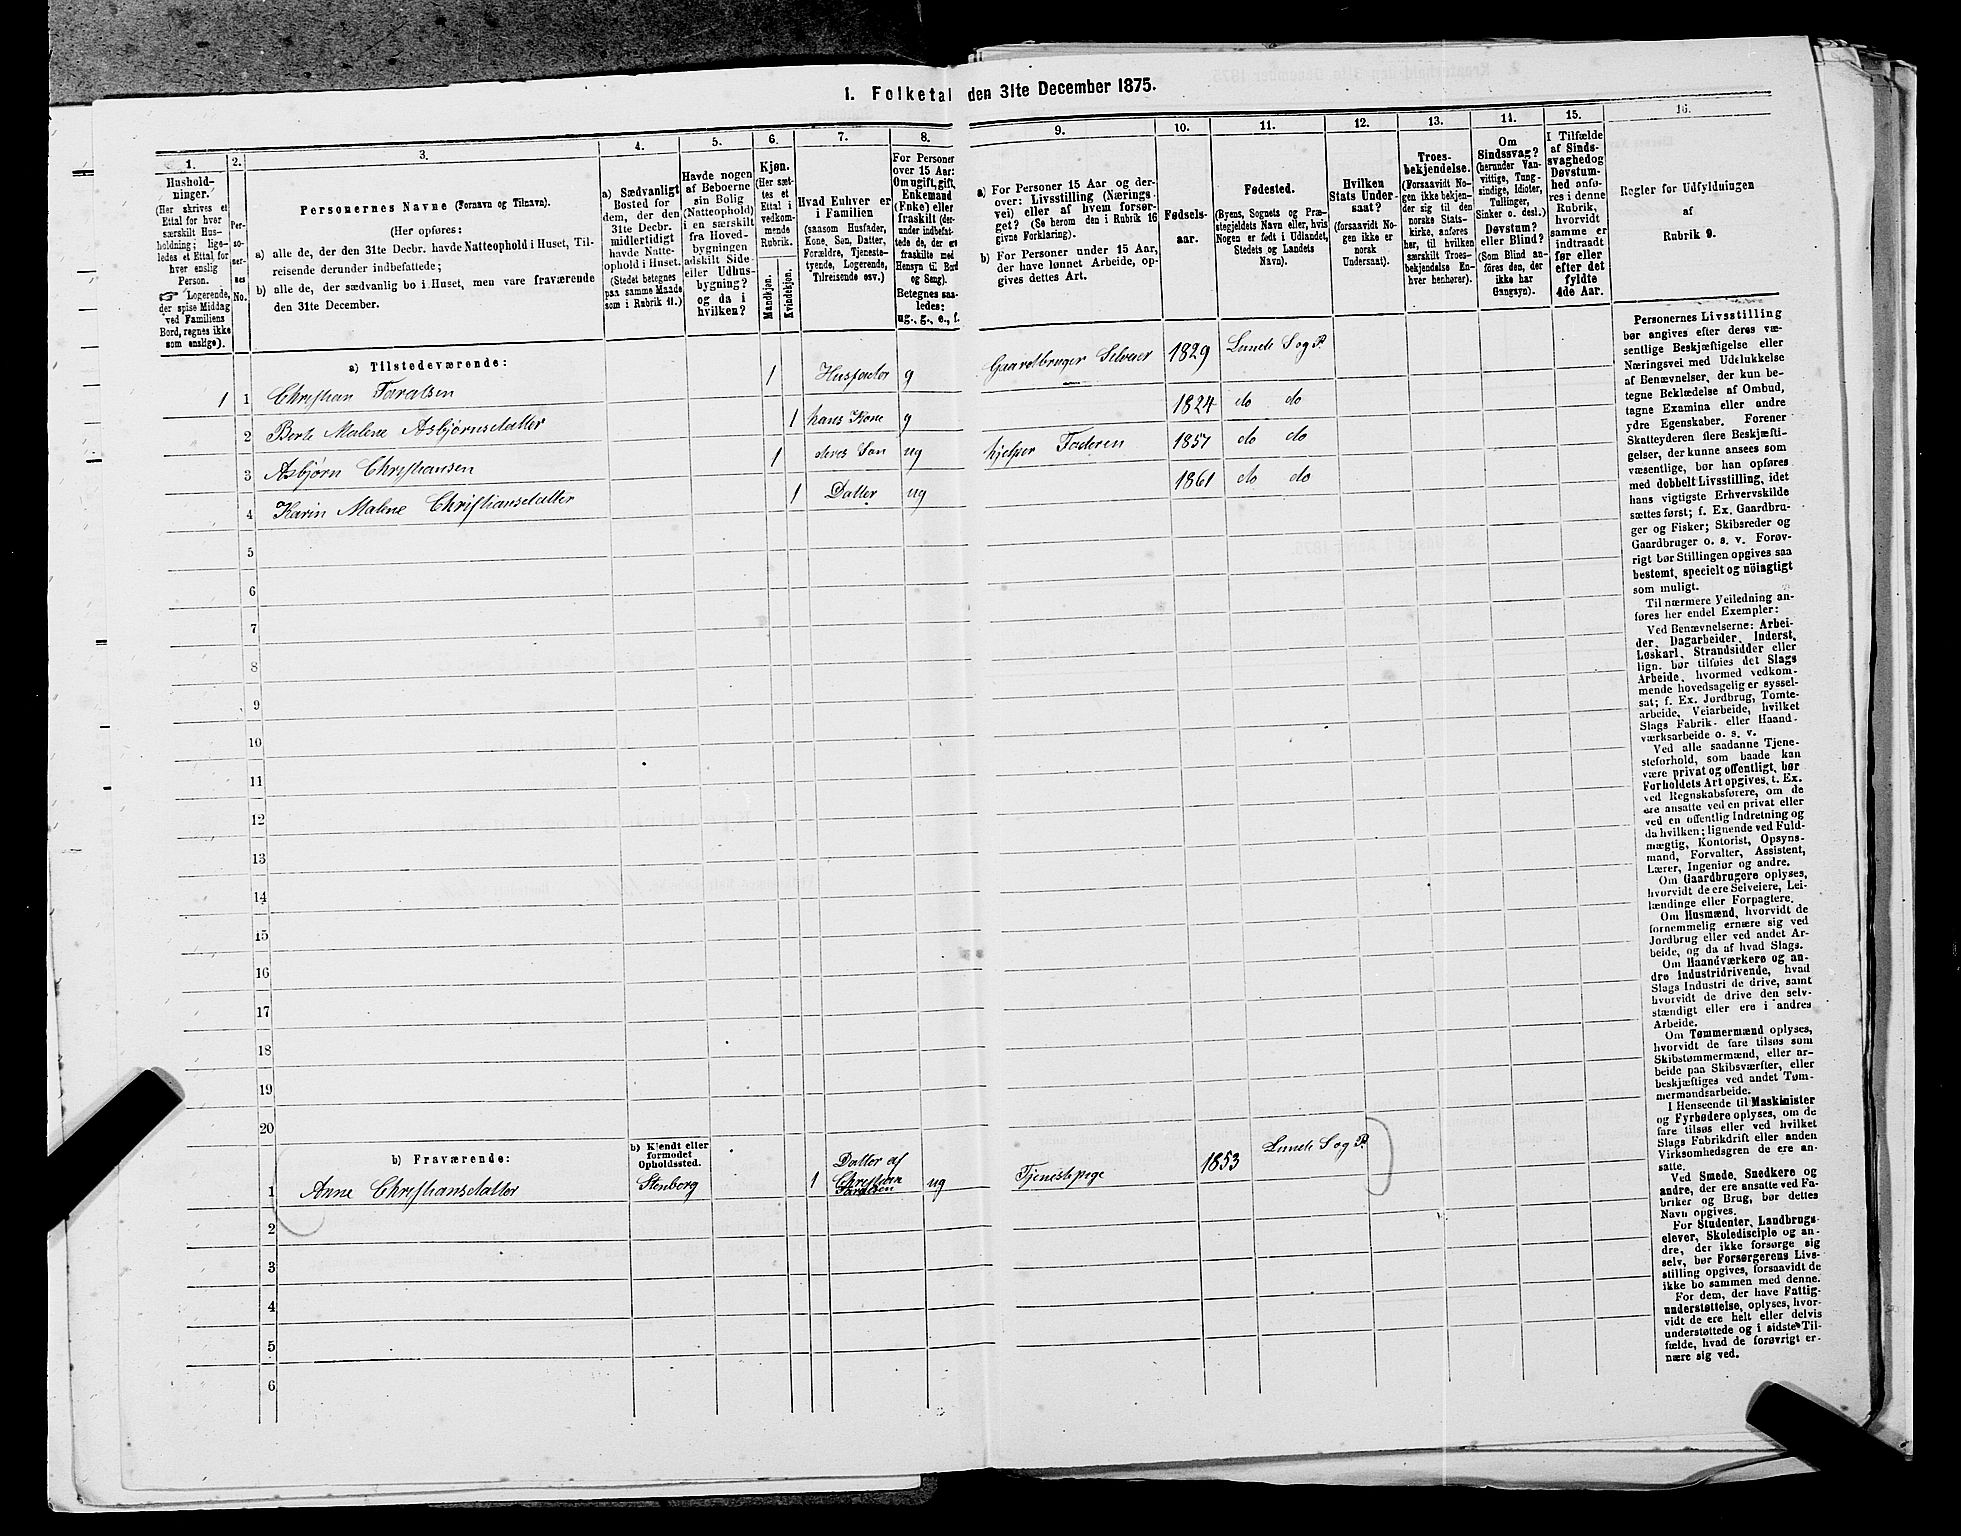 1. Folketal den 31te December 1875.
1. 2. 3. 4. 5. 6. 7. 8. 9. 10. 11. 12. 13. 14. 15. 16.
Hushold-
ninger.
(Her skrives et
Ettal for hver
særskilt Hus-
holdning; lige-
ledes et Ettal for
hver enslig
Person.
☞ Logerende,
der spise Middag
ved Familiens
Bord, regnes ikke
som enslige).
Per-
so-
ner-
nes
No.
Personernes Navne (Fornavn og Tilnavn).
(Her opføres:
a) alle de, der den 31te Decbr. havde Natteophold i Huset, Til-
reisende derunder indbefattede;
b) alle de, der sædvanlig bo i Huset, men vare fraværende
den 31te December.
a) Sædvanligt
Bosted for
dem, der den
31te Decbr.
midlertidigt
havde Natte-
ophold i Huset.
(Stedet betegnes
paa samme Maade
som i Rubrik 11.)
Havde nogen
af Beboerne
sin Bolig
(Natteophold)
i en særskilt
fra Hoved-
bygningen
adskilt Side-
eller Udhus-
bygning?
og da i
hvilken?
Kjøn.
(Her sæt-
tes et
Ettal i
vedkom-
mende
Rubrik.
Mandkjøn.
Kvindekjøn.
Hvad Enhver er
i Familien
(saasom Husfader,
Kone, Søn, Datter,
Forældre, Tjeneste-
tyende, Logerende,
Tilreisende osv.)
For Personer
over 15 Aar:
Om ugift, gift,
Enkemand
(Enke) eller
fraskilt (der-
under indbefat-
tede de, der ere
fraskilte med
Hensyn til Bord
og Seng).
Betegnes saa-
ledes:
ug., g., e., f.
a) For Personer 15 Aar og der-
over: Livsstilling (Nærings-
vei) eller af hvem forsør-
get? (Se herom den i Rubrik 16
givne Forklaring).
b) For Personer under 15 Aar,
der have lønnet Arbeide, op-
gives dettes Art.
Fødsels-
aar.
Fødested.
(Byens, Sognets og Præ-
stegjeldets Navn eller, hvis
Nogen er født i Udlandet,
Stedets og Landets
Navn).
Hvilken
Stats Under-
saat?
(forsaavidt No-
gen ikke er
norsk
Undersaat).
Troes-
bekjendelse.
(Forsaavidt No-
gen ikke bekjen-
der sig til den
norske Stats-
kirke, anføres
her, til hvilken
særskilt Troes-
bekjendelse En-
hver henhører).
Om
Sindssvag?
(herunder Van-
vittige, Tung-
sindige, Idioter,
Tullinger,
Sinker o. desl.)
Døvstum?
eller Blind?
(Som Blind an-
føres den, der
ikke har
Gangsyn).
I Tilfælde
af Sinds-
svaghed og
Døvstum-
hed anfø-
res i denne
Rubrik,
hvorvidt
samme er
indtraadt
før eller
efter det
fyldte
4de Aar.
Regler for Udfyldningen
af
Rubrik 9.
a) Tilstedeværende:
1 1 Christian Taralsen 1 Husfader g Gaardbruger Selveier 1829 Lunde S og P.
2 Berte Malene Asbjørnsdatter 1 hans Kone g 1824 do do
3 Asbjørn Christiansen 1 deres Søn ug hjelper Faderen 1857 do do
4 Karin Malene Christiansdatter 1 Datter ug 1861 do do
5
6
7
8
9
10
11
12
13
14
15
16
17
18
19
20
b) Fraværende:
b) Kjendt eller
formodet
Opholdssted.
1 Anne Christiansdatter Stenberg 1 Datter af
Christian
Taralsen ug Tjenestepige 1853 Lunde S og P.
2
3
4
5
6
Personernes Livsstilling
bør angives efter deres væ-
sentlige Beskjæftigelse eller
Næringsvei med Udelukkelse
af Benævnelser, der kun be-
tegne Beklædelse af Ombud,
tagne Examina eller andre
ydre Egenskaber. Forener
Skatteyderen flere Beskjæfti-
gelser, der kunne ansees som
væsentlige, bør han opføres
med dobbelt Livsstilling, idet
hans vigtigste Erhvervskilde
sættes først; f. Ex. Gaardbru-
ger og Fisker; Skibsreder og
Gaardbruger o. s. v. Forøv-
rigt bør Stillingen opgives saa
bestemt, specielt og nöiagtigt
som muligt.
Til nærmere Veiledning an-
føres her endel Exempler:
Ved Benævnelserne: Arbei-
der, Dagarbeider, Inderst,
Løskarl, Strandsidder eller
lign. bør tilføies det Slags
Arbeide, hvormed vedkom-
mende hovedsagelig er syssel-
sat; f. Ex. Jordbrug, Tomte-
arbeide, Veiarbeide, hvilket
Slags Fabrik- eller Haand-
værksarbeide o. s. v.
Ved alle saadanne Tjene-
steforhold, som baade kan
være privat og offentligt, bør
Forholdets Art opgives, t. Ex.
ved Regnskabsførere, om de
ere ansatte ved en privat eller
ved en offentlig Indretning og
da hvilken; lignende ved Fuld-
mægtig, Kontorist, Opsyns-
mand, Forvalter, Assistent,
Lærer, Ingeniør og andre.
Om Gaardbrugere oplyses,
hvorvidt de ere Selveiere, Lei-
lændinge eller Forpagtere.
Om Husmænd, hvorvidt de
fornemmelig ernære sig ved
Jordbrug eller ved andet Ar-
beide, og da af hvad Slags.
Om Haandværkere og an-
dre Industridrivende, hvad
Slags Industri de drive, samt
hvorvidt de drive den selv-
stændigt eller ere i andres
Arbeide.
Om Tømmermænd oplyses,
hvorvidt de fare tilsøs som
Skibstømmermænd, eller ar-
beide paa Skibsværfter, eller
beskjæftiges ved andet Tøm-
mermandsarbeide.
I Henseende til Maskinister
og Fyrbødere oplyses, om de
fare tilsøs eller ved hvilket
Slags Fabrikdrift eller anden
Virksomhedsgren de ere an-
satte.
Ved Smede, Snedkere og
andre, der ere ansatte ved Fa-
briker og Brug, bør dettes
Navn opgives.
For Studenter, Landbrugs-
elever, Skoledisciple og an-
dre, der ikke forsørge sig
selv, bør Forsørgerens Livs-
stilling opgives, forsaavidt de
ikke bo sammen med denne.
For dem, der have Fattig-
understøttelse, oplyses, hvor-
vidt de ere helt eller delvis
understøttede og i sidste Til-
fælde, hvad de forøvrigt er-
nære sig ved.